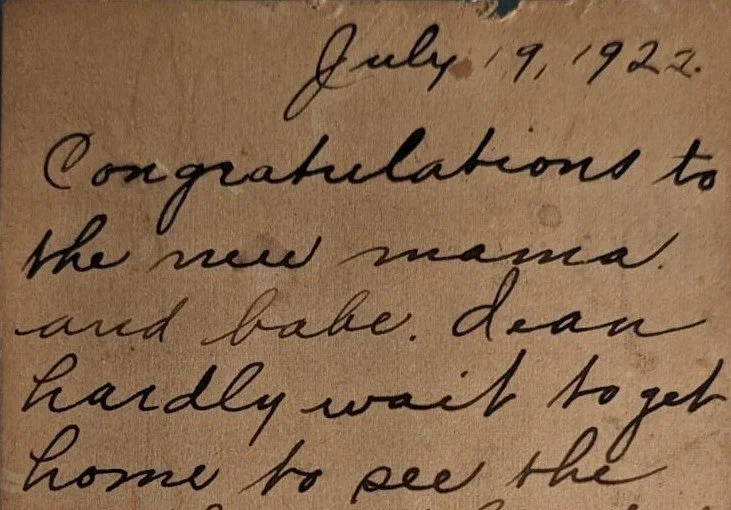 July 19, 1922.
Congratulations to
the new mama
and babe. I can
hardly wait to get
home to see the